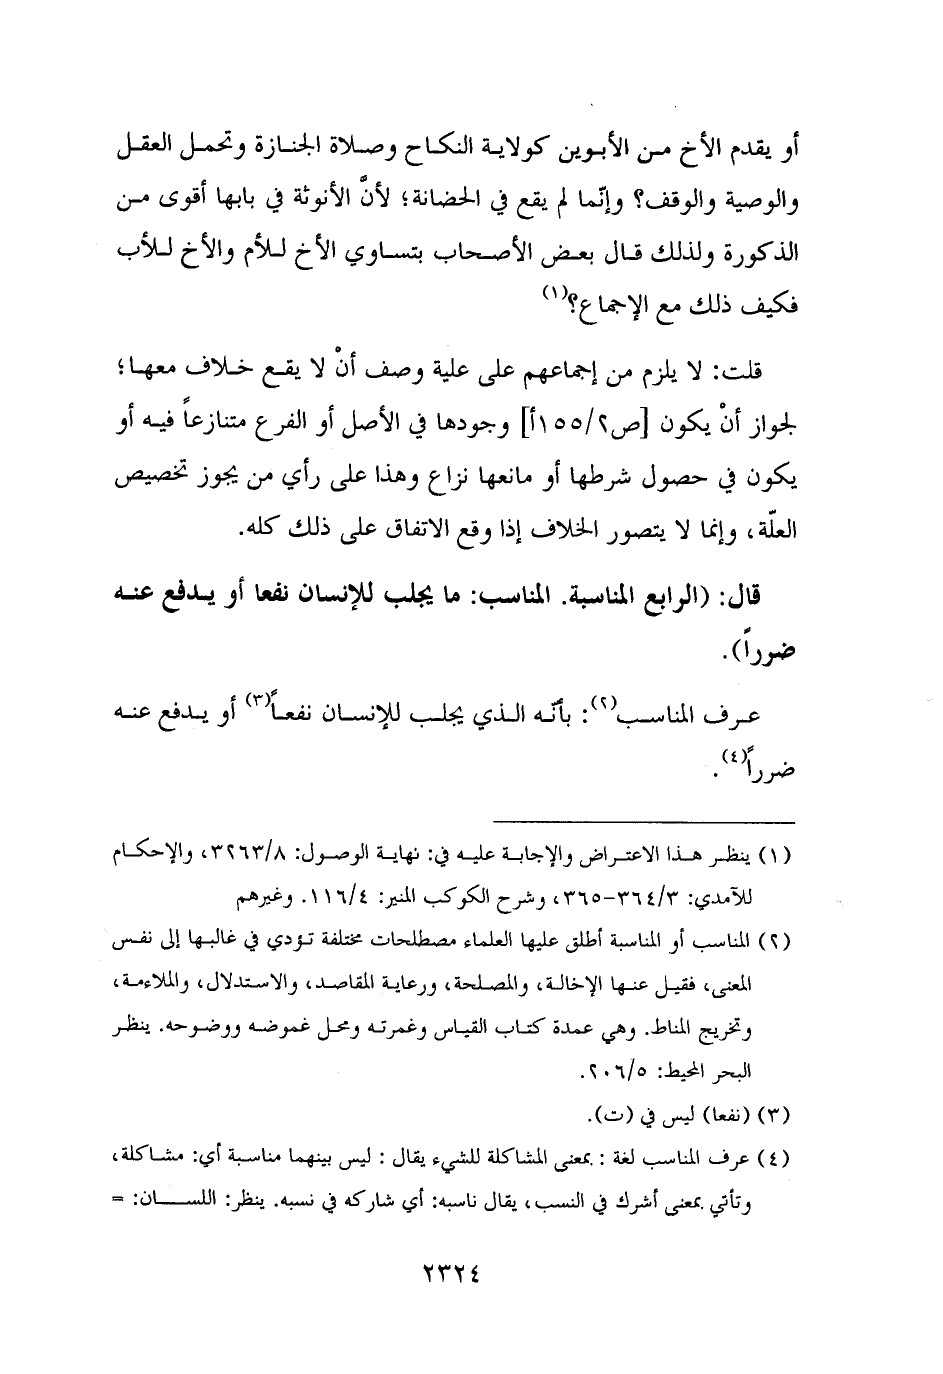 أو يقدم الأخ من الأبوين كولاية النكاح وصلاة الجنازة وتحمل العقل
والوصية والوقف؟ وإنّما لم يقع في الحضانة؛ لأنَّ الأنوثة في بابها أقوى من
الذكورة ولذلك قال بعض الأصحاب بتساوي الأخ للأم والأخ للأب
فكيف ذلك مع الإجماع؟(١)
قلت: لا يلزم من إجماعهم على علية وصف أنْ لا يقع خلاف معها؛
لجواز أنْ يكون [ص٢/١٥٥أ] وجودها في الأصل أو الفرع متنازعاً فيه أو
يكون في حصول شرطها أو مانعها نزاع وهذا على رأي من يجوز تخصيص
العلّة، وإنما لا يتصور الخلاف إذا وقع الاتفاق على ذلك كله.
قال: (الرابع المناسبة. المناسب: ما يجلب للإنسان نفعا أو يدفع عنه
ضرراً).
عرف المناسب(٢): بأنّه الذي يجلب للإنسان نفعاً(٣) أو يدفع عنه
ضرراً(٤).
(١) ينظر هذا الاعتراض والإجابة عليه في: نهاية الوصول: ٣٢٦٣/٨، والإحكام
للآمدي: ٣٦٤/٣-٣٦٥، وشرح الكوكب المنير: ١١٦/٤. وغيرهم
(٢) المناسب أو المناسبة أطلق عليها العلماء مصطلحات مختلفة تؤدي في غالبها إلى نفس
المعنى، فقيل عنها الإخالة، والمصلحة، ورعاية المقاصد، والاستدلال، والملاءمة،
وتخريج المناط. وهي عمدة كتاب القياس وغمرته ومحل غموضه ووضوحه. ينظر
البحر المحيط: ٢٠٦/٥.
(٣) (نفعا) ليس في (ت).
(٤) عرف المناسب لغة : بمعنى المشاكلة للشيء يقال : ليس بينهما مناسبة أي: مشاكلة،
وتأتي بمعنى أشرك في النسب، يقال ناسبه: أي شاركه في نسبه. ينظر: اللسان: =
٢٣٢٤